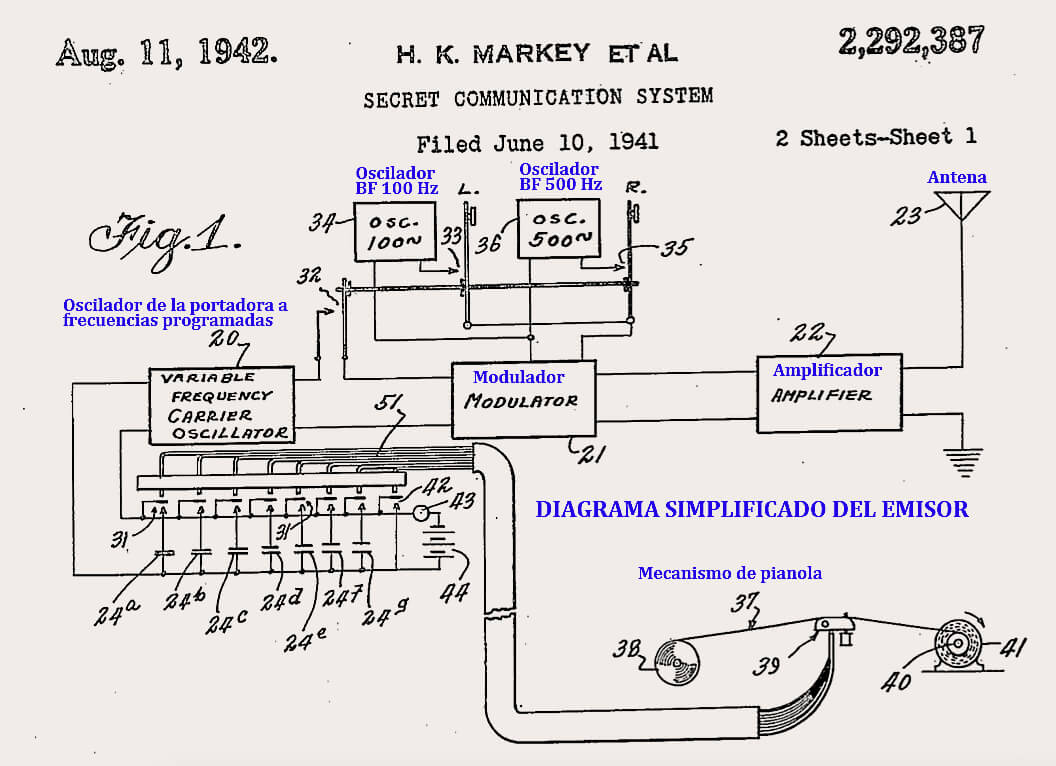 Aug. 11, 1942.
H. K. MARKEY ET AL
2,292,387
SECRET COMMUNICATION SYSTEM
Filed June 10, 1941
2 Sheets-Sheet 1
Fig.1.
Oscilador
BF 100 Hz
L.
Oscilador
BF 500 Hz
R.
Antena
34
OSC.
100~
33
36
OSC.
500~
35
23
32
Oscilador de la portadora a
frecuencias programadas
20
VARIABLE
FREQUENCY
CARRIER
OSCILLATOR
51
Modulador
MODULATOR
21
22
Amplificador
AMPLIFIER
42
43
31
31
24a
24b
24c
24d
24e
24f
24g
44
DIAGRAMA SIMPLIFICADO DEL EMISOR
Mecanismo de pianola
37
38
39
40
41